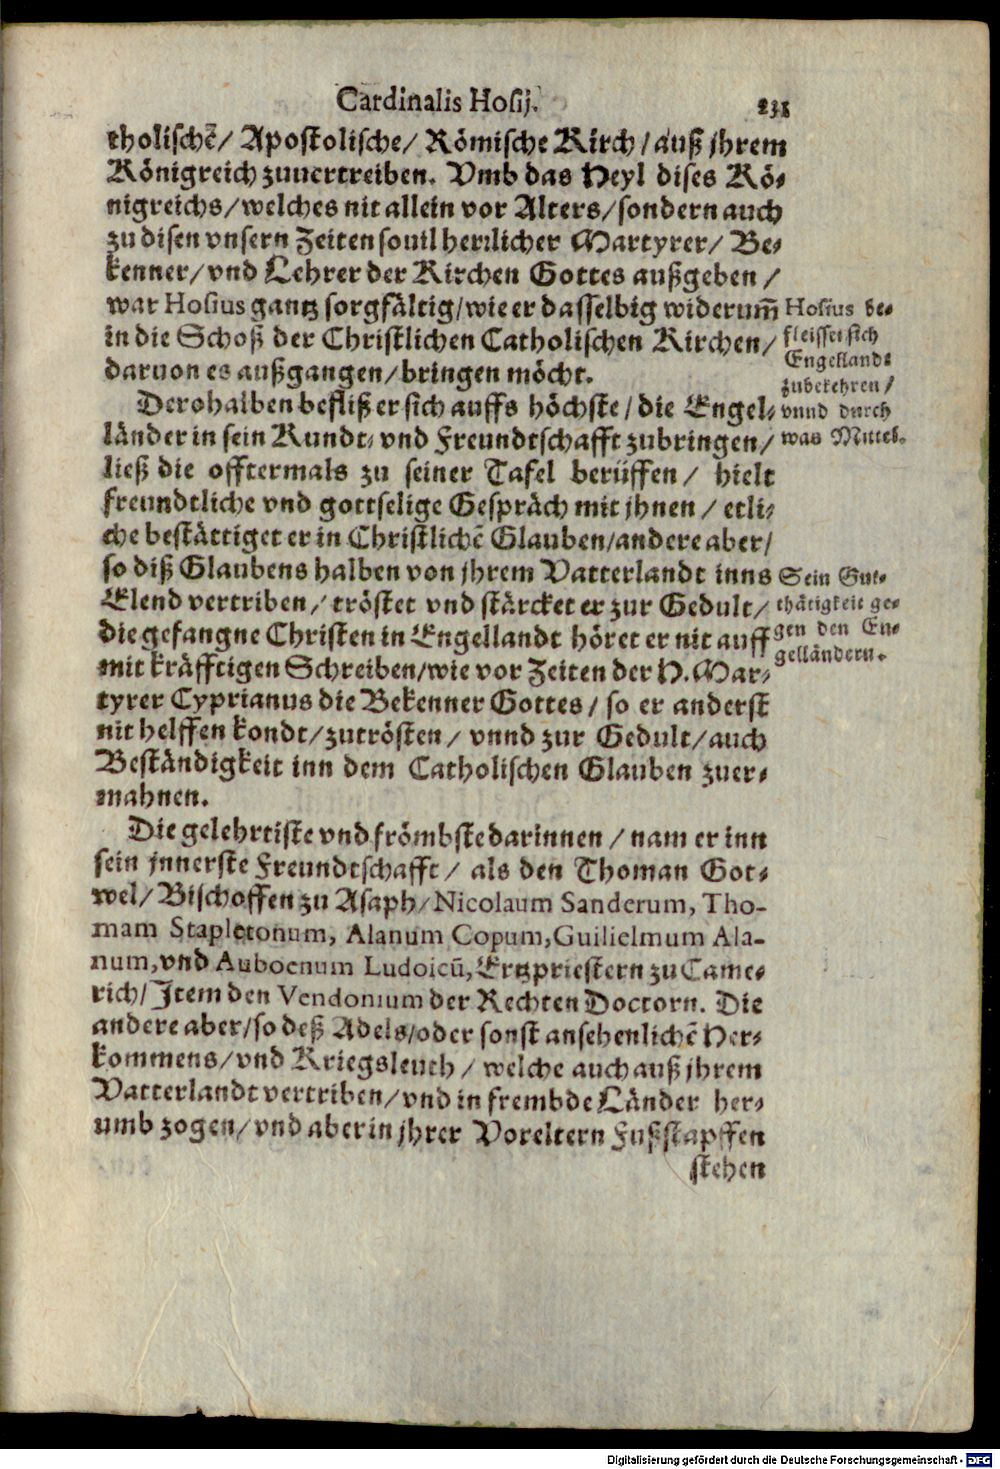 Cardinalis Hosij. 231
tholischẽ/ Apostolische/ Römische Kirch/ auß jhrem
Königreich zuuertreiben. Vmb das Heyl dises Kö-
nigreichs/ welches nit allein vor Alters/ sondern auch
zu disen vnsern Zeiten souil herꝛlicher Martyrer/ Be-
kenner/ vnd Lehrer der Kirchen Gottes außgeben/
war Hosius gantz sorgfältig/ wie er dasselbig widerum̃
in die Schoß der Christlichen Catholischen Kirchen/
daruon es außgangen/ bringen möcht.
Hosius be-
fleisset sich
Engelland
zubekehren/
vnnd durch
was Mittel.
Derohalben befliß er sich auffs höchste/ die Engel-
länder in sein Kundt- vnd Freundtschafft zubringen/
ließ die offtermals zu seiner Tafel berüffen/ hielt
freundtliche vnd gottselige Gespräch mit jhnen/ etli-
che bestättiget er in Christlichẽ Glauben/ andere aber/
so diß Glaubens halben von jhrem Vatterlandt inns
Elend vertriben/ tröstet vnd stärcket er zur Gedult/
die gefangne Christen in Engellandt höret er nit auff
mit kräfftigen Schreiben/ wie vor Zeiten der H. Mar-
tyrer Cyprianus die Bekenner Gottes/ so er anderst
nit helffen kondt/ zutrösten/ vnnd zur Gedult/ auch
Beständigkeit inn dem Catholischen Glauben zuer-
mahnen.
Sein Gut-
thätigkeit ge-
gen den En-
gelländern.
Die gelehrtiste vnd frömbste darinnen/ nam er inn
sein jnnerste Freundtschafft/ als den Thoman Got-
wel/ Bischoffen zu Asaph/ Nicolaum Sanderum, Tho-
mam Stapletonum, Alanum Copum, Guilielmum Ala-
num, vnd Aubocnum Ludoicũ, Ertzpriestern zu Came-
rich/ Jtem den Vendonium der Rechten Doctorn. Die
andere aber/ so deß Adels/ oder sonst ansehenlichẽ Her-
kommens/ vnd Kriegsleuth/ welche auch auß jhrem
Vatterlandt vertriben/ vnd in frembde Länder her-
umb zogen/ vnd aber in jhrer Voreltern Fußstapffen
stehen
Digitalisierung gefördert durch die Deutsche Forschungsgemeinschaft - DFG